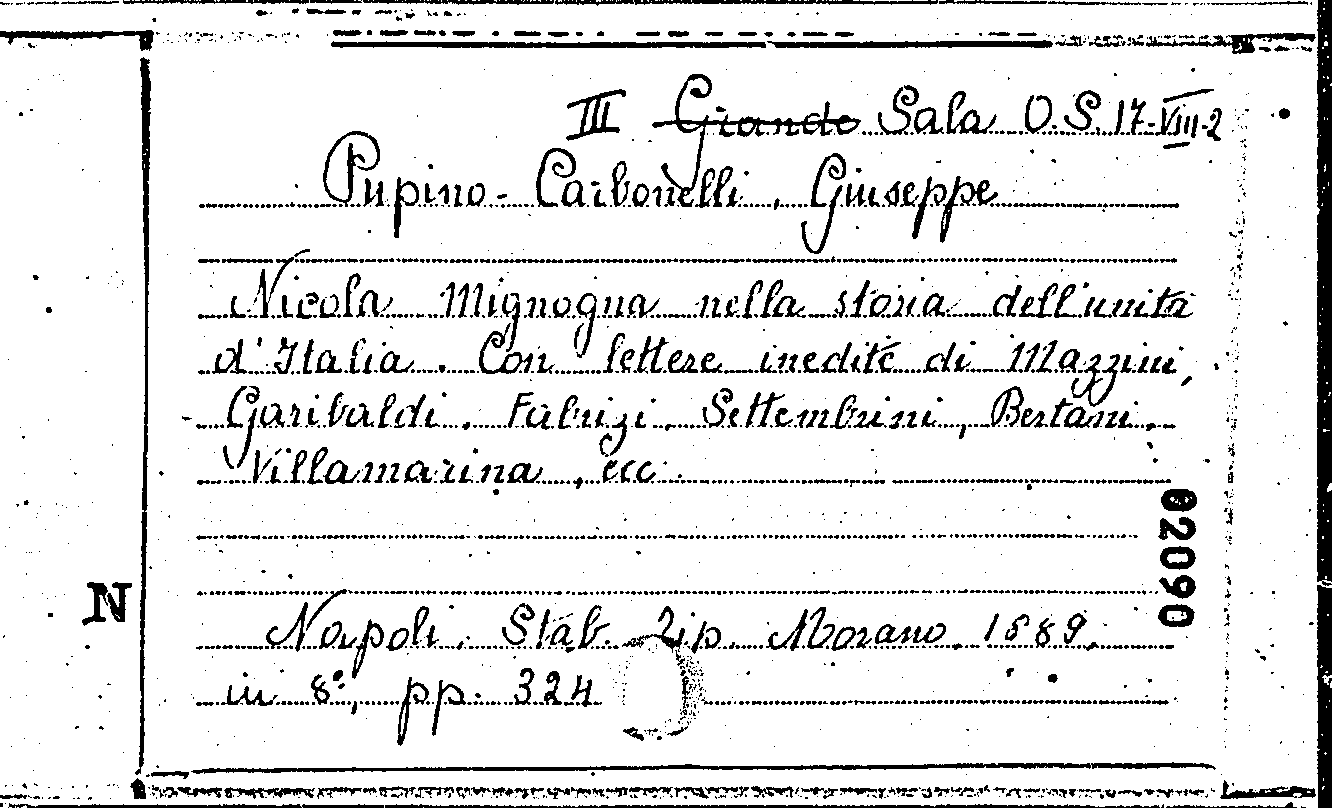 III Grande Sala O.S. 17-VIII-2
Pupino-Carbonelli, Giuseppe
Nicola Mignogna nella storia dell'unità
d'Italia. Con lettere inedite di Mazzini,
Garibaldi, Fabrizi, Settembrini, Bertani,
Villamarina, ecc.
02090
N
Napoli, Stab. Tip. Morano, 1889,
in 8°, pp. 324